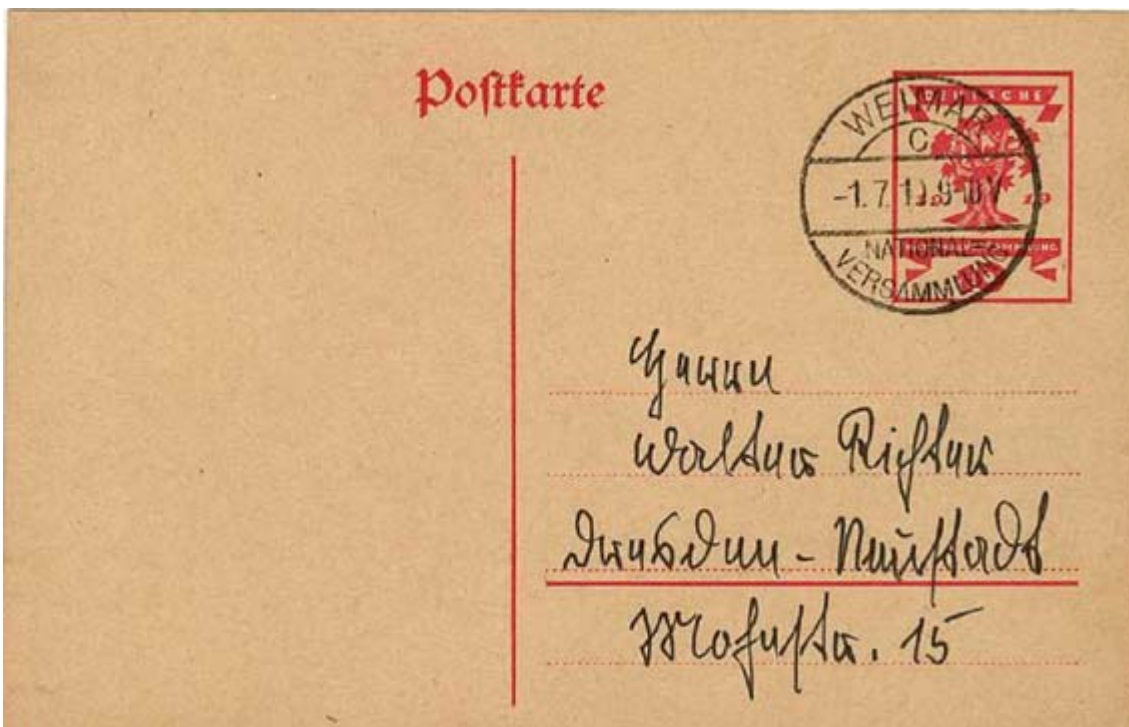 Postkarte
DEUTSCHE
WEIMAR
C
-1.7.19.9-10V
19 19
NATIONAL=
VERSAMMLUNG
Herrn
Walter Richter
Dresden-Neustadt
15